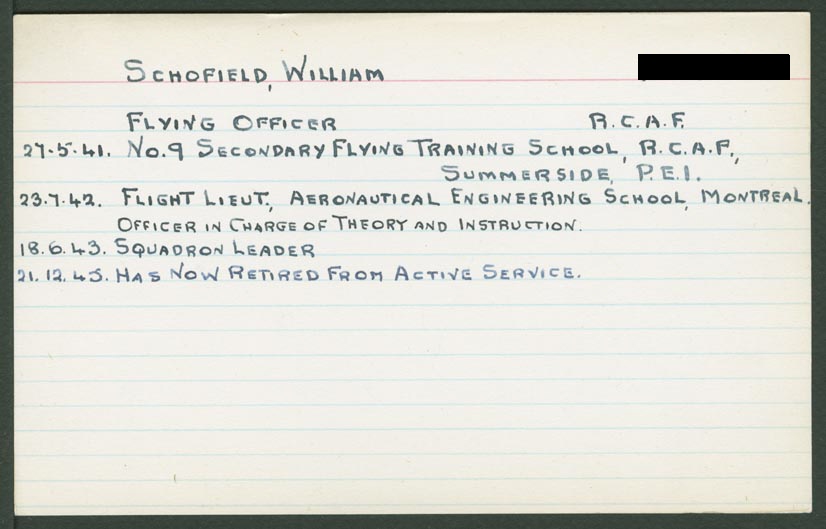 SCHOFIELD, WILLIAM
FLYING OFFICER R.C.A.F.
27.5.41. No.9 SECONDARY FLYING TRAINING SCHOOL, R.C.A.F.,
SUMMERSIDE, P.E.I.
23.7.42. FLIGHT LIEUT., AERONAUTICAL ENGINEERING SCHOOL, MONTREAL.
OFFICER IN CHARGE OF THEORY AND INSTRUCTION.
18.6.43. SQUADRON LEADER
21.12.45. HAS NOW RETIRED FROM ACTIVE SERVICE.